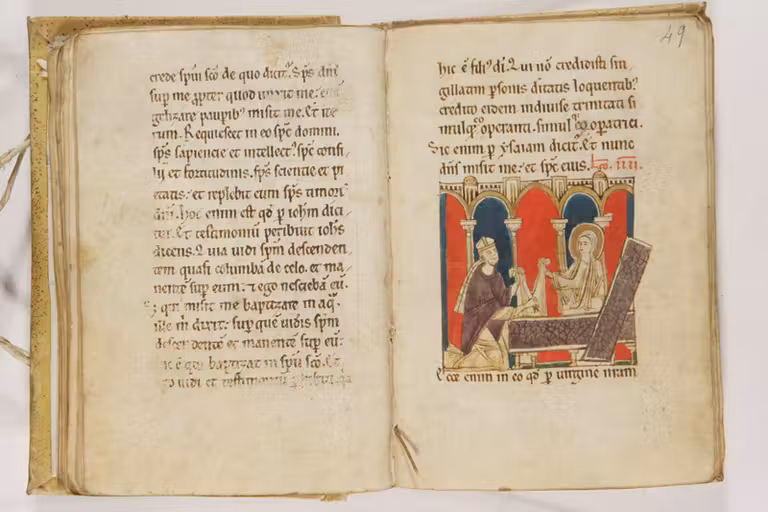 crede spui sco de quo dicit. Sps dni
sup me ꝓpter quod unxit me: eu
gelizare pauꝑibꝰ misit me. Et ite
rum. Requiescet in eo spc domini.
sps sapiencie et intellectꝰ. spc consi
lii et fortitudinis. sps sciencie et pi
etatis. et replebit eum sps timoris
dni. hoc enim est qd ꝑ iohm dici
tur. Et testimoniū ꝑibuit iohs
dicens. Quia uidi spm descenden
tem quasi columbā de celo. et ma
nente sup eum. ⁊ ego nesciebā eū.
s; qui misit me baptizare in aq̄.
ille m dixit: sup quē uidis spm
descendentē et manentē sup eū:
hic ē qui baptizat in spu sco. Et
uidi et testimoniū
49
hic ē filiꝰ di. Qui nō credidisti sin
gillatim ꝑsonis diuitatis loquentibꝰ
credito eidem indiuise trinitati si
mulqꝫ operanti. simul coopatrici.
Sic enim ꝑ ysaiam dicit. Et nunc
dns misit me: et spc eius. Lco. iiii.
Ecce enim in eo qd ꝑ uirginē mariā